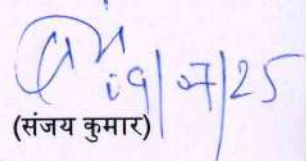 09/07/25
(संजय कुमार)